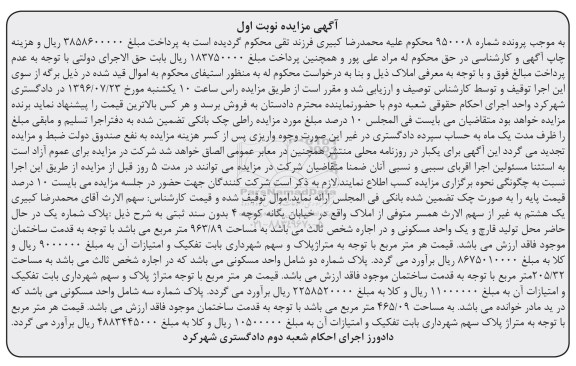 آگهی مزایده نوبت اول
به موجب پرونده شماره ۹۵۰۰۰۸ محکوم علیه محمدرضا کبیری فرزند تقی محکوم گردیده است به پرداخت مبلغ ۳۸۵۸۶۰۰۰۰۰ ریال و هزینه
چاپ آگهی و کارشناسی در حق محکوم له مراد علی پور و همچنین پرداخت مبلغ ۱۸۳۷۵۰۰۰۰ ریال بابت حق الاجرای دولتی با توجه به عدم
پرداخت مبالغ فوق و با توجه به معرفی املاک ذیل و بنا به درخواست محکوم له به منظور استیفای محکوم به اموال قید شده در ذیل برگه از سوی
این اجرا توقیف و توسط کارشناس توصیف و ارزیابی شد و مقرر است از طریق مزایده راس ساعت ۱۰ یکشنبه مورخ ۱۳۹۶/۰۷/۲۳ در دادگستری
شهرکرد واحد اجرای احکام حقوقی شعبه دوم با حضورنماینده محترم دادستان به فروش برسد و هر کس بالاترین قیمت را پیشنهاد نماید برنده
مزایده خواهد بود متقاضیان می بایست فی المجلس ۱۰ درصد مبلغ مورد مزایده راطی چک بانکی تضمین شده به دفتراجرا تسلیم و مابقی مبلغ
را ظرف مدت یک ماه به حساب سپرده دادگستری در غیر این صورت وجوه واریزی پس از کسر هزینه مزایده به نفع صندوق دولت ضبط و مزایده
تجدید می گردد این آگهی برای یکبار در روزنامه محلی منتشرهمچنین در معابر عمومی الصاق خواهد شد شرکت در مزایده برای عموم آزاد است
به استثنا مسئولین اجرا اقربای سببی و نسبی آنان ضمنا متقاضیان شرکت در مزایده می توانند در مدت ۵ روز قبل از مزایده از طریق این اجرا
نسبت به چگونگی نحوه برگزاری مزایده کسب اطلاع نمایند.لازم به ذکر است شرکت کنندگان جهت حضور در جلسه مزایده می بایست ۱۰ درصد
قیمت پایه را به صورت چک تضمین شده بانکی فی المجلس ارائه نماید.اموال توقیف شده و قیمت کارشناس: سهم الارث آقای محمدرضا کبیری
یک هشتم به غیر از سهم الارث همسر متوفی از املاک واقع در خیابان یگانه کوچه ۴ بدون سند ثبتی به شرح ذیل :پلاک شماره یک در حال
حاضر محل تولید قارچ و یک واحد مسکونی و در اجاره شخص ثالث می باشد به مساحت ۹۶۳/۸۹ متر مربع می باشد با توجه به قدمت ساختمان
موجود فاقد ارزش می باشد. قیمت هر متر مربع با توجه به متراژپلاک و سهم شهرداری بابت تفکیک و امتیازات آن به مبلغ ۹۰۰۰۰۰۰ ریال و
کلا به مبلغ ۸۶۷۵۰۱۰۰۰۰ ریال برآورد می گردد. پلاک شماره دو شامل واحد مسکونی می باشد که در اجاره شخص ثالث می باشد به مساحت
۲۰۵/۳۲متر مربع با توجه به قدمت ساختمان موجود فاقد ارزش می باشد. قیمت هر متر مربع با توجه متراژ پلاک و سهم شهرداری بابت تفکیک
و امتیازات آن به مبلغ ۱۱۰۰۰۰۰۰ ریال و کلا به مبلغ ۲۲۵۸۵۲۰۰۰۰ ریال برآورد می گردد. پلاک شماره سه شامل واحد مسکونی می باشد که
در ید مادر خوانده می باشد. به مساحت ۴۶۵/۰۹ متر مربع می باشد با توجه به قدمت ساختمان موجود فاقد ارزش می باشد. قیمت هر متر مربع
با توجه به متراژ پلاک سهم شهرداری بابت تفکیک و امتیازات آن به مبلغ ۱۰۵۰۰۰۰۰ ریال و کلا به مبلغ ۴۸۸۳۴۴۵۰۰۰ ریال برآورد می گردد.
دادورز اجرای احکام شعبه دوم دادگستری شهرکرد